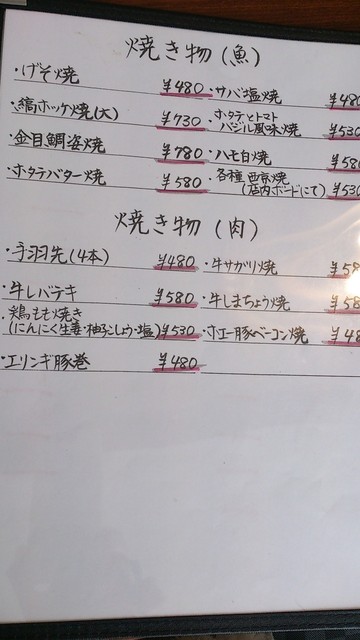 焼き物(魚)
・げそ焼 ¥480
・サバ塩焼 ¥480
・縞ホッケ焼(大) ¥730
・ホタテとトマト
バジル風味焼 ¥530
・金目鯛姿焼 ¥780
・ハモ白焼 ¥58
・ホタテバター焼 ¥580
・各種 西京焼
(店内ボードにて) ¥530
焼き物(肉)
・手羽先(4本) ¥480
・牛サガリ焼 ¥58
・牛レバテキ ¥580
・牛しまちょう焼 ¥58
・鶏もも焼き
(にんにく生姜・柚子こしょう・塩) ¥530
・ホエー豚ベーコン焼 ¥48
・エリンギ豚巻 ¥480